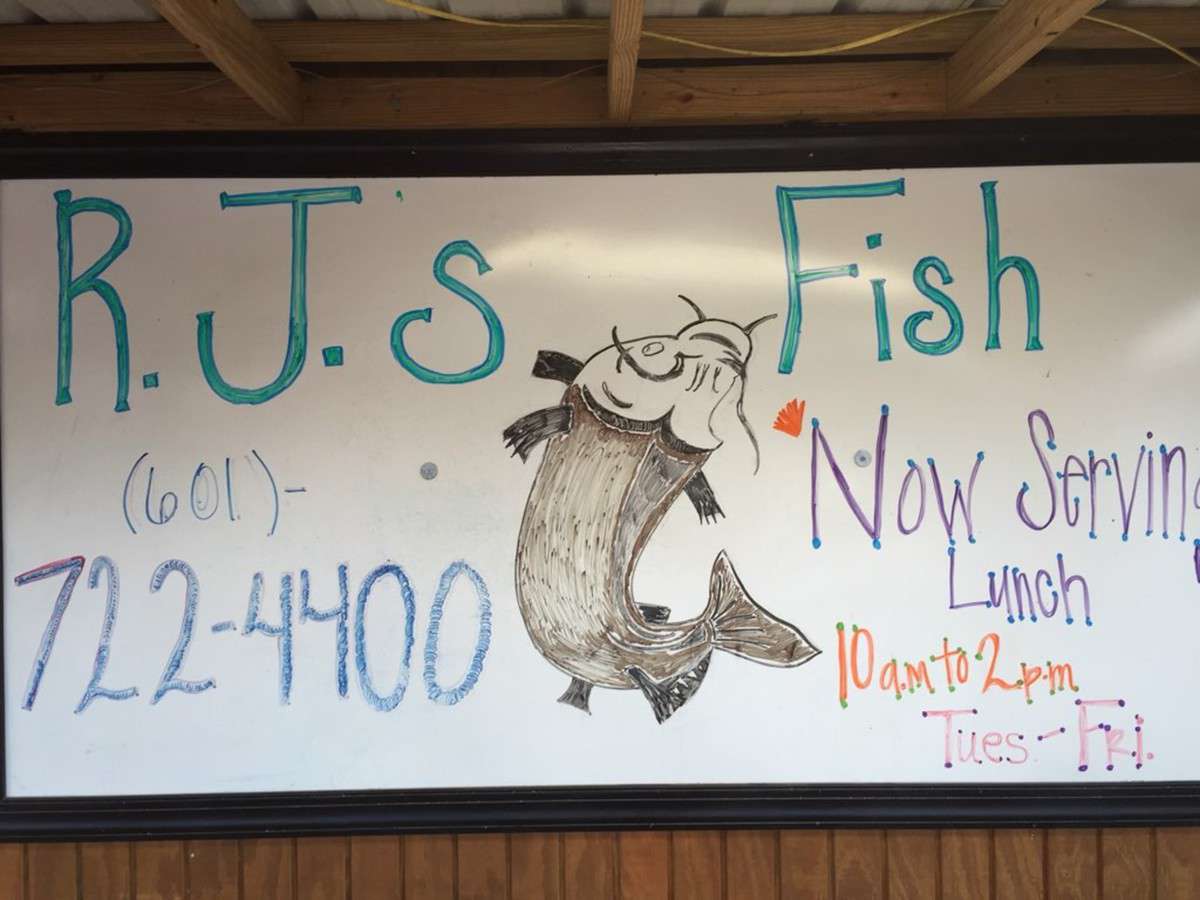 R.J.'s Fish
(601)-
722-4400
Now Serving
Lunch
10 a.m to 2 p.m
Tues-Fri.